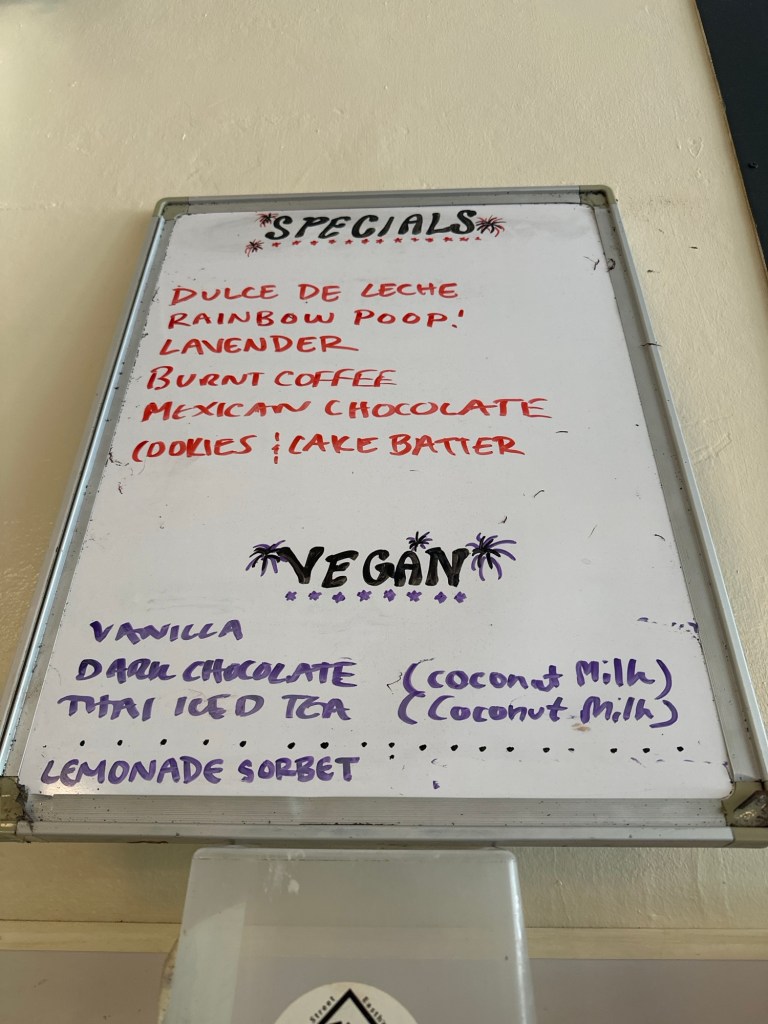 SPECIALS
DULCE DE LECHE
RAINBOW POOP!
LAVENDER
BURNT COFFEE
MEXICAN CHOCOLATE
COOKIES & CAKE BATTER
VEGAN
VANILLA
DARK CHOCOLATE (COCONUT MILK)
THAI ICED TEA (COCONUT MILK)
LEMONADE SORBET
Street